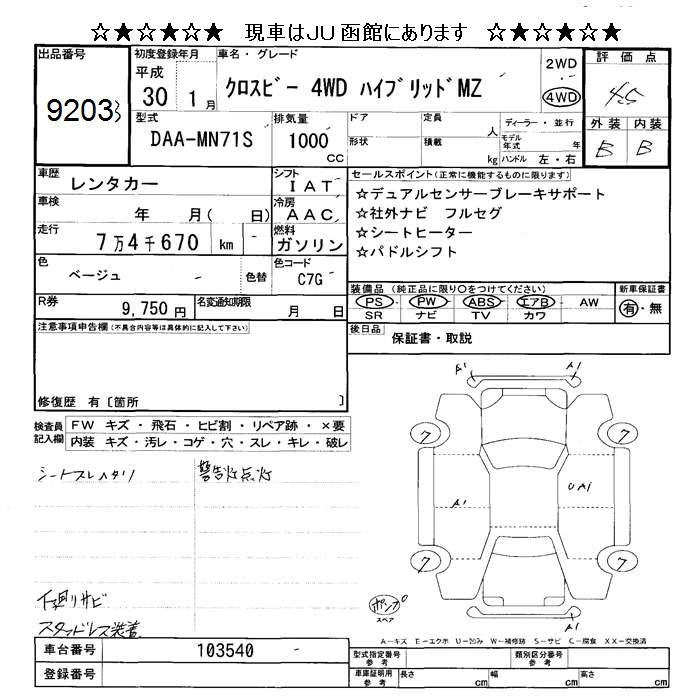 ☆★☆★☆★ 現車はJU函館にあります ☆★☆★☆★
出品番号
9203
初度登録年月
平成
30 1月
車名・グレード
クロスビー 4WD ハイブリッドMZ
2WD
4WD
評価点
4.5
外装 内装
B B
型式
DAA-MN71S
排気量
1000
CC
ドア
形状
定員
人
積載
kg
ディーラー・並行
モデル年式 年
ハンドル 左・右
車歴 レンタカー
シフト
IAT
車検 年 月( 日)
冷房
AAC
走行 7万4千670 km
燃料
ガソリン
色 ベージュ 色替
色コード
C7G
R券 9,750円
名変通知期限 月 日
セールスポイント(正常に機能するものに限ります)
☆デュアルセンサーブレーキサポート
☆社外ナビ フルセグ
☆シートヒーター
☆パドルシフト
装備品(純正品に限り〇をつけてください)
PS PW ABS エアB AW
SR ナビ TV カワ
新車保証書
有・無
後日品 保証書・取説
注意事項申告欄(不具合内容等は具体的に記入して下さい)
修復歴 有〔箇所 〕
検査員記入欄
FW キズ・飛石・ヒビ割・リペア跡・×要
内装 キズ・汚レ・コゲ・穴・スレ・キレ・破レ
シートスレヘタリ 警告灯点灯
下廻リサビ
スタッドレス装着
A1 A1
7 7
A1 UA1
7 7
ポンプ
スペア
A1
A-キズ E-エクボ U-凹み W-補修跡 S-サビ C-腐食 XX-交換済
車台番号 103540
登録番号
型式指定番号 参考
類別区分番号 参考
車庫証明用 参考 長さ cm 幅 cm 高さ cm